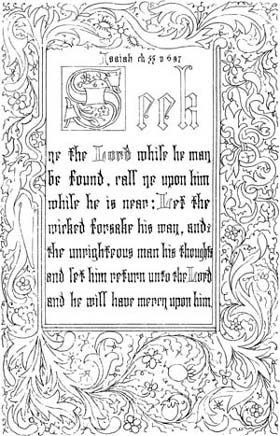 Isaiah ch 55 v 6 & 7
Seek
ye the Lord while he may
be found, call ye upon him
while he is near: Let the
wicked forsake his way, and
the unrighteous man his thoughts
and let him return unto the Lord
and he will have mercy upon him.